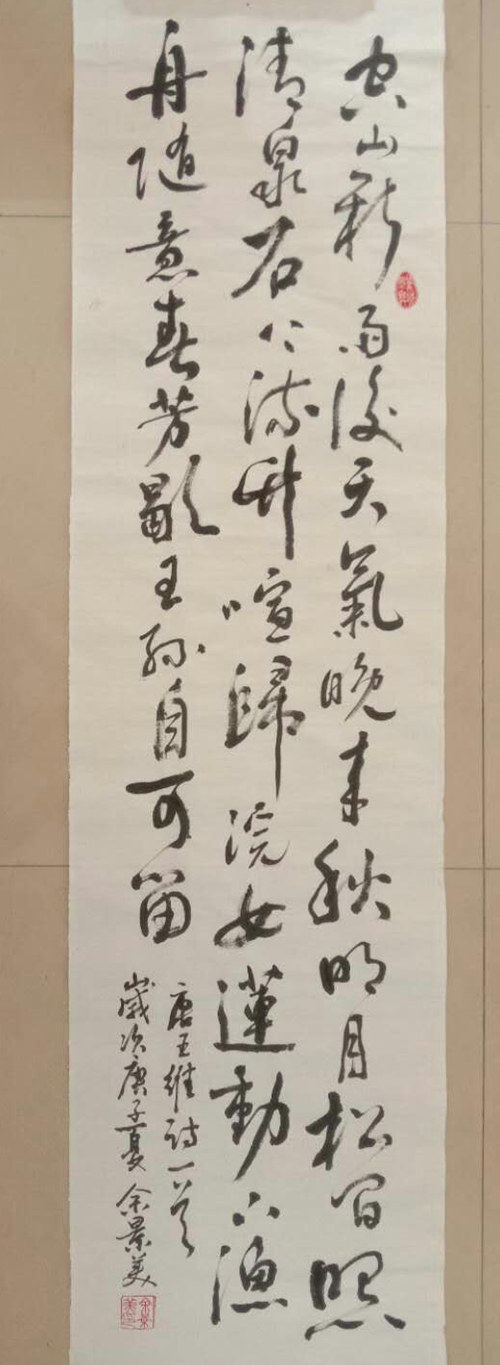 空山新雨後天氣晚来秋明月松間照
清泉石上流竹喧歸浣女蓮動下漁
舟随意春芳歇王孫自可留
唐王維詩一首
歲次庚子夏 余景美